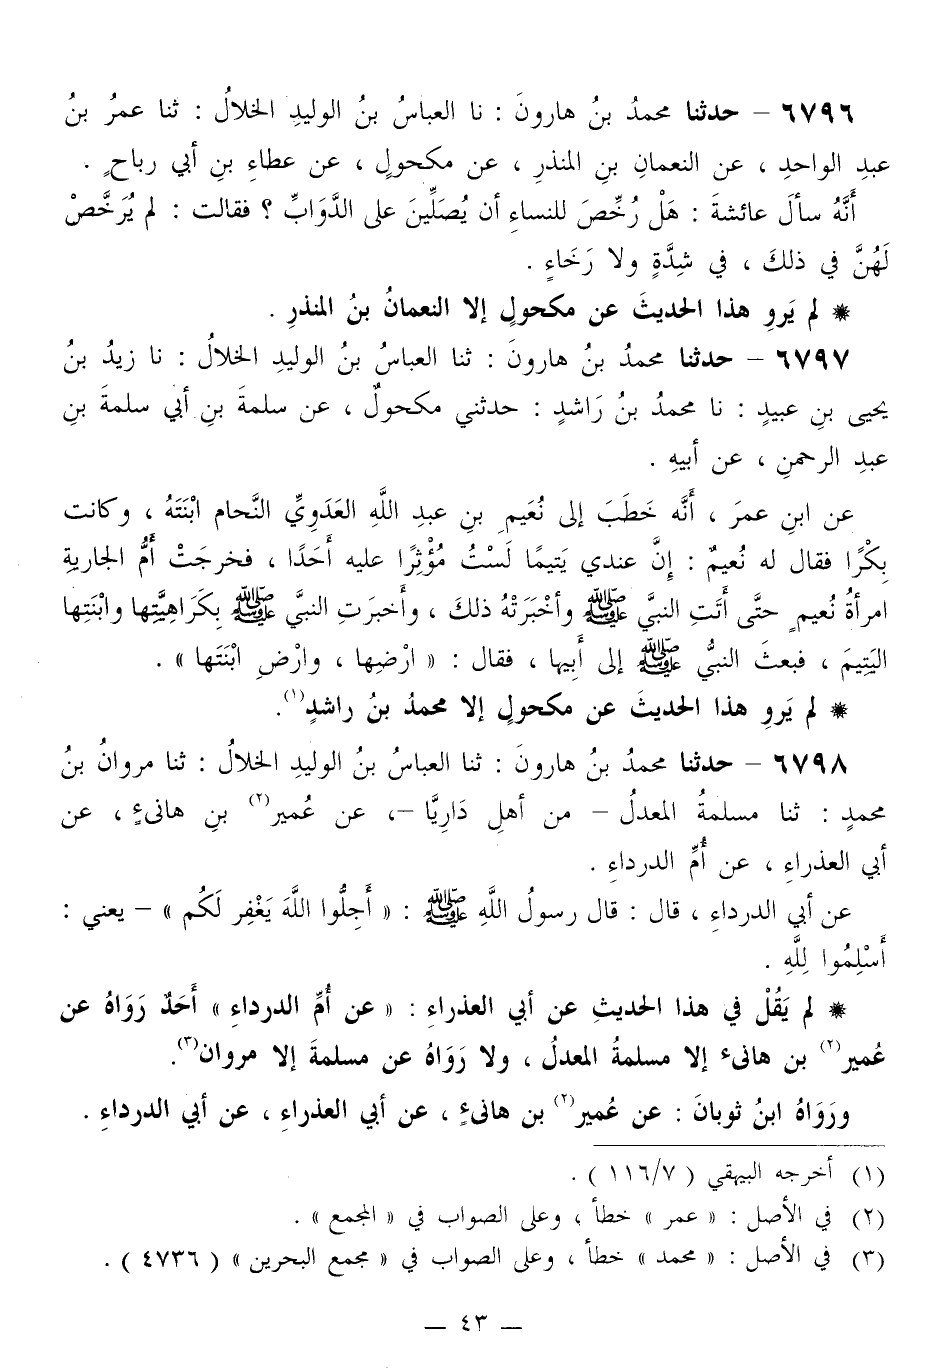 ٦٧٩٦ – حدثنا محمدُ بنُ هارونَ : نا العباسُ بنُ الوليدِ الخلالُ : ثنا عمرُ بنُ
عبدِ الواحدِ ، عن النعمانِ بنِ المنذرِ ، عن مكحولٍ ، عن عطاءِ بنِ أبي رباحٍ .
أَنَّهُ سألَ عائشةَ : هَلْ رُخِّصَ للنساءِ أن يُصَلِّينَ على الدَّوَابِّ ؟ فقالت : لم يُرَخَّصْ
لَهُنَّ في ذلكَ ، في شِدَّةٍ ولا رَخَاءٍ .
* لم يَروِ هذا الحديثَ عن مكحولٍ إلا النعمانُ بنُ المنذرِ .
٦٧٩٧ – حدثنا محمدُ بنُ هارونَ : ثنا العباسُ بنُ الوليدِ الخلالُ : نا زيدُ بنُ
يحيى بنِ عبيدٍ : نا محمدُ بنُ رَاشدٍ : حدثني مكحولٌ ، عن سلمةَ بنِ أبي سلمةَ بنِ
عبدِ الرحمنِ ، عن أبيهِ .
عن ابنِ عمرَ ، أَنَّه خَطَبَ إلى نُعَيمِ بنِ عبدِ اللَّهِ العَدَوِيِّ النَّحام ابْنَتَهُ ، وكانت
بِكْرًا فقال له نُعيمٌ : إِنَّ عندي يَتيمًا لَسْتُ مُؤْثِرًا عليه أَحَدًا ، فخرجَتْ أُمُّ الجاريةِ
امرأةُ نُعيمٍ حتَّى أَتَتِ النبيَّ ﷺ وأخْبَرَتْهُ ذلكَ ، وأَخبرَتِ النبيَّ ﷺ بِكَرَاهِيَّتِها وابْنَتِها
اليَتِيمَ ، فبعثَ النبيُّ ﷺ إلى أَبِيها ، فقال : « ارْضِها ، وارْضِ ابْنَتَها » .
* لم يَروِ هذا الحديثَ عن مكحولٍ إلا محمدُ بنُ راشدٍ(١).
٦٧٩٨ – حدثنا محمدُ بنُ هارونَ : ثنا العباسُ بنُ الوليدِ الخلالُ : ثنا مروانُ بنُ
محمدٍ : ثنا مسلمةُ المعدلُ – من أهلِ دَارِيَّا –، عن عُميرِ(٢) بنِ هانىءٍ ، عن
أبي العذراءِ ، عن أُمِّ الدرداءِ .
عن أبي الدرداءِ ، قال : قال رسولُ اللَّهِ ﷺ : « أَجِلُّوا اللَّهَ يَغْفِر لَكُم » – يعني :
أَسْلِمُوا لِلَّهِ .
* لم يَقُلْ في هذا الحديثِ عن أبي العذراءِ : « عن أُمِّ الدرداءِ » أَحَدٌ رَوَاهُ عن
عُميرِ(٢) بن هانىء إلا مسلمةُ المعدلُ ، ولا رَوَاهُ عن مسلمةَ إلا مروان(٣).
ورَوَاهُ ابنُ ثوبانَ : عن عُميرِ(٢) بن هانىءٍ ، عن أبي العذراءِ ، عن أبي الدرداءِ .
(١) أخرجه البيهقي ( ١١٦/٧ ) .
(٢) في الأصل : « عمر » خطأ ، وعلى الصواب في « المجمع » .
(٣) في الأصل : « محمد » خطأ ، وعلى الصواب في « مجمع البحرين » ( ٤٧٣٦ ) .
— ٤٣ —